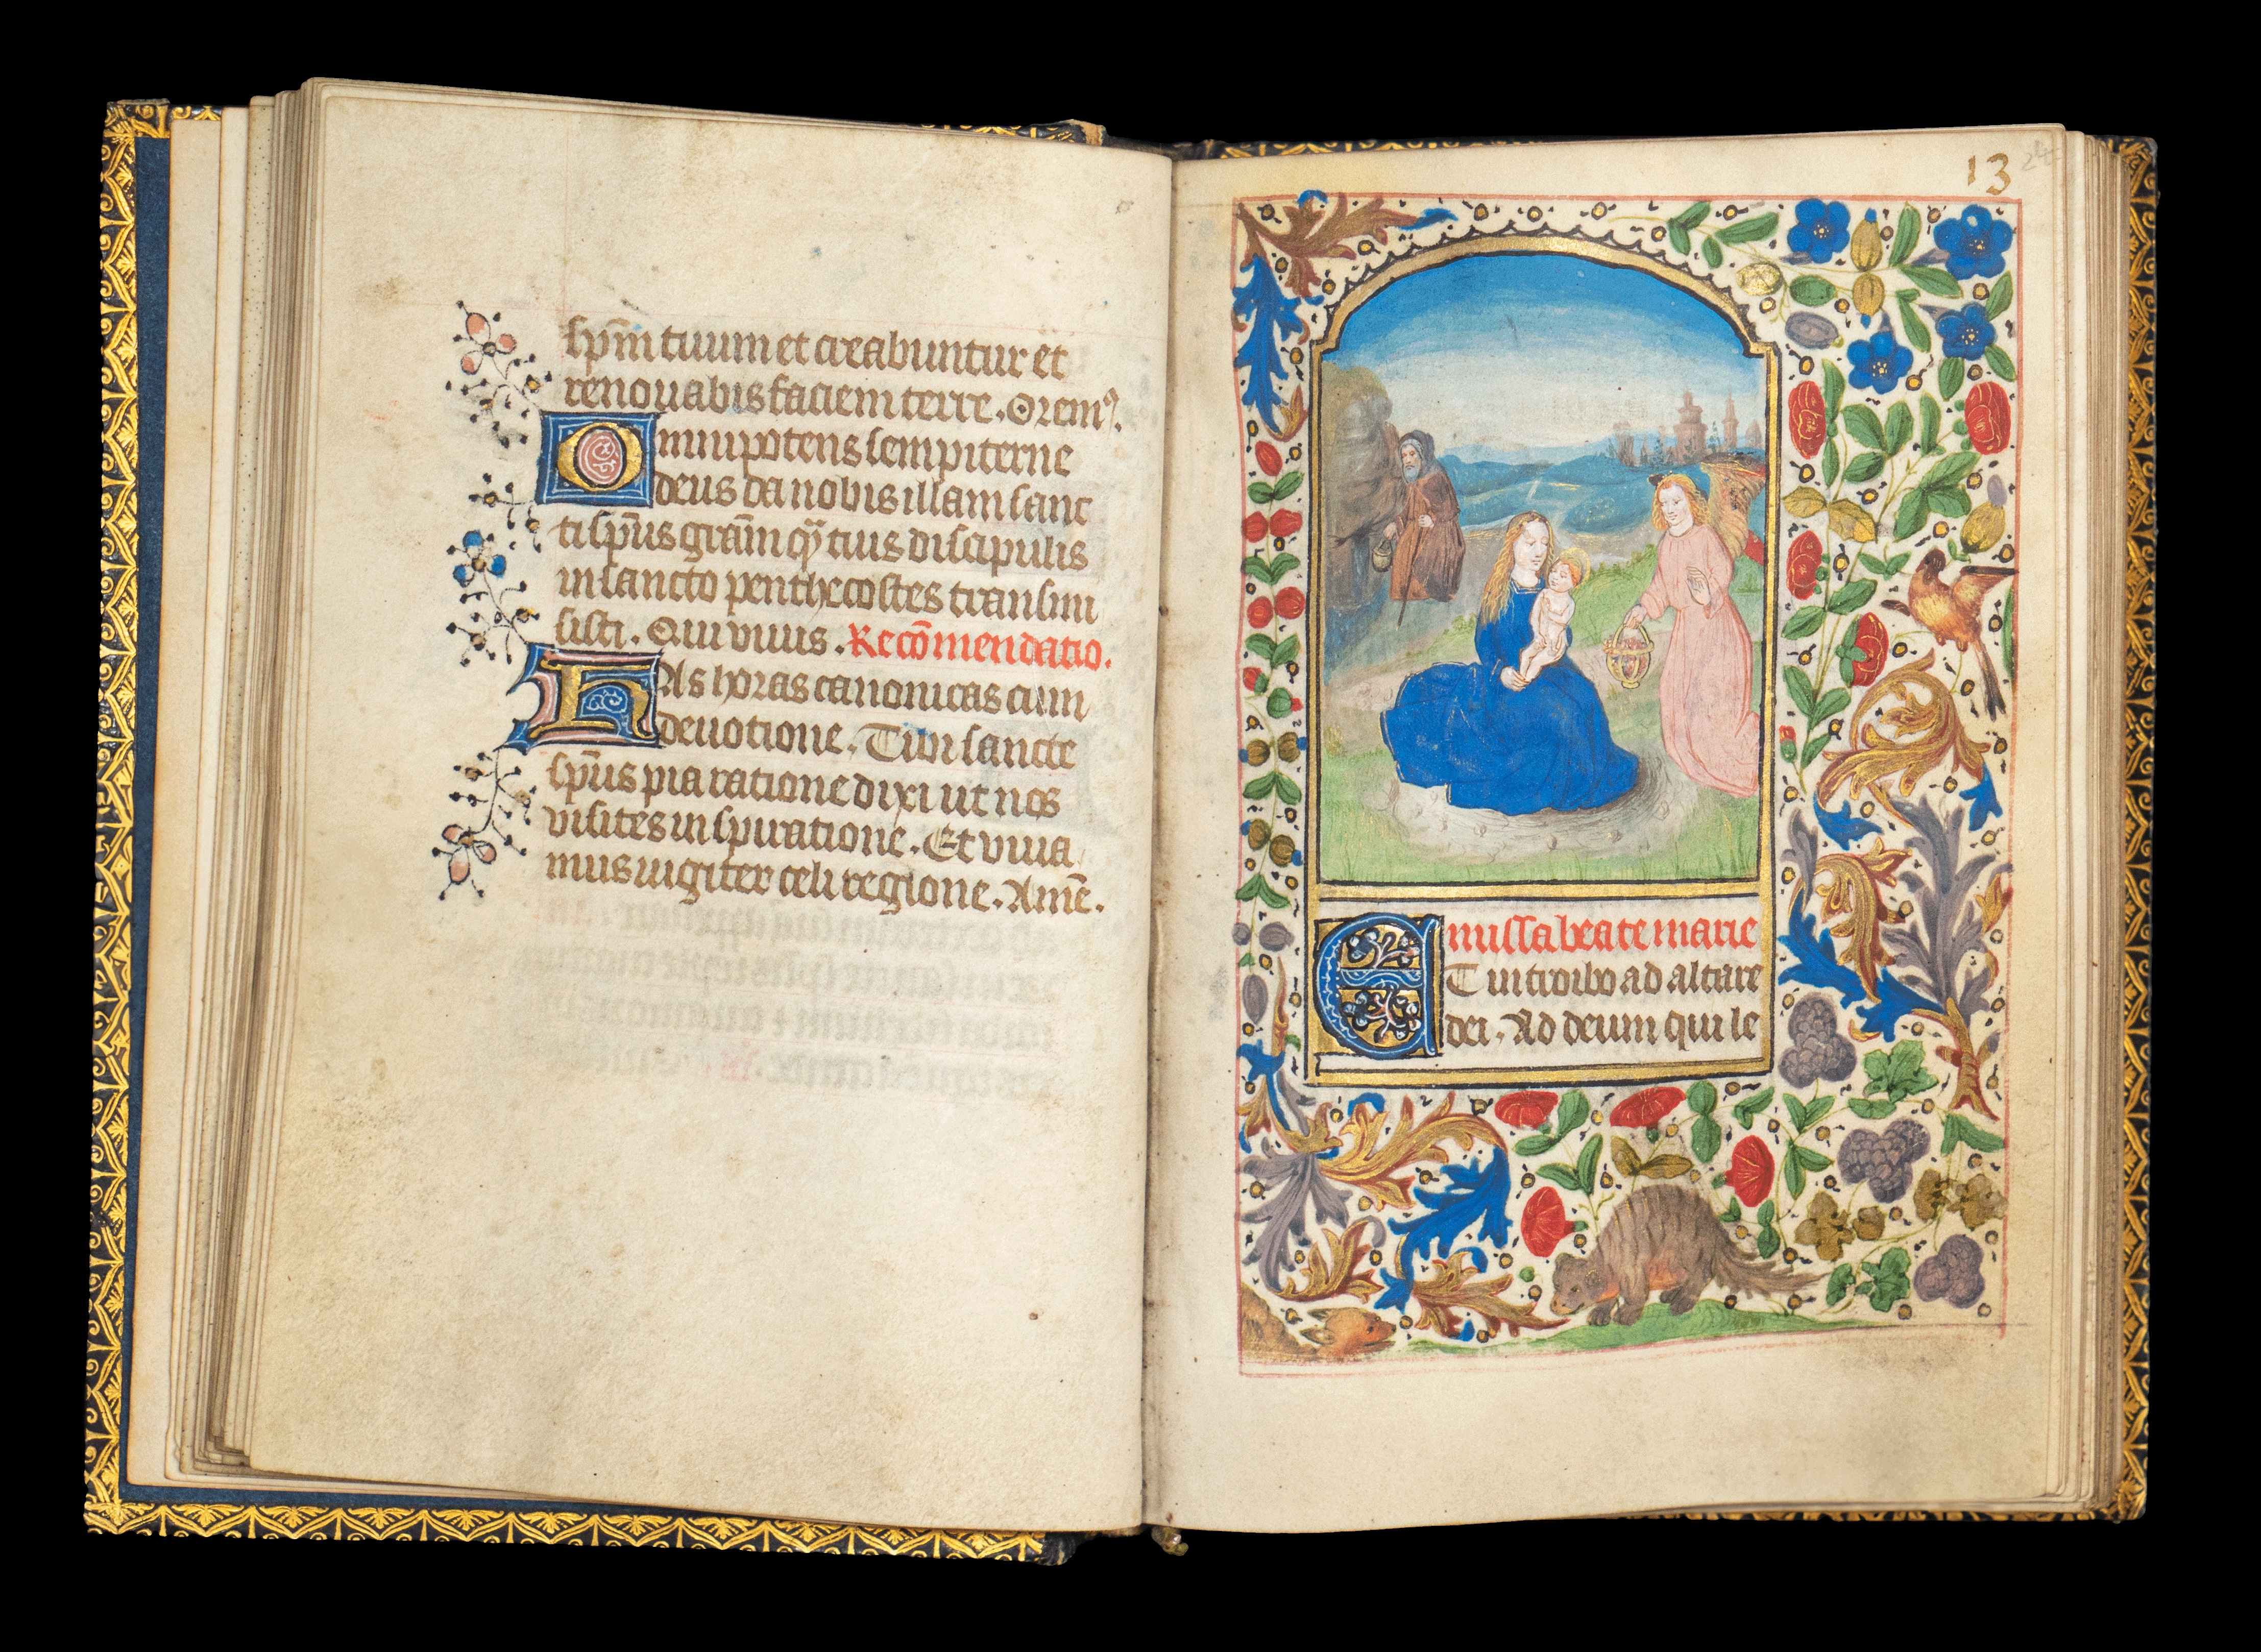 sp̄m tuum et creabuntur et
renouabis faciem terre. Orem⁹.
Omnipotens sempiterne
deus da nobis illam sanc
ti sp̄us grām q̄ tuis discipulis
in sancto penthecostes transmi
sisti. Qui viuis. Recōmendatio.
Has horas canonicas cum
deuotione. Tibi sancte
sp̄us pia ratione dixi ut nos
visites inspiratione. Et viua
mus iugiter celi regione. Amē.
13
24
missa beate marie
ET introibo ad altare
dei. Ad deum qui le